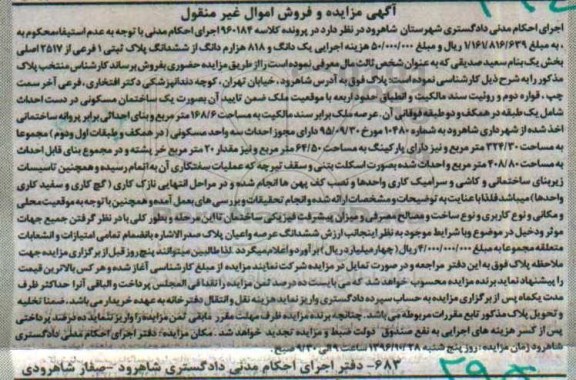 آگهی مزایده و فروش اموال غیر منقول
اجرای احکام مدنی دادگستری شهرستان شاهرود در نظر دارد در پرونده کلاسه 960184 اجرای احکام مدنی با توجه به عدم استیفاء محکوم به
، به مبلغ 7/161/816/639 ریال و مبلغ 50/000/000 هزینه اجرایی یک دانگ و 818 هزارم دانگ از ششدانگ پلاک ثبتی 1 فرعی از 2517 اصلی
بخش یک بنام سعید صدیقی که به عنوان شخص ثالث مال معرفی نموده است را از طریق مزایده حضوری بفروش برساند کارشناس منتخب پلاک
مذکور را به شرح ذیل کارشناسی نموده است: پلاک فوق به آدرس شاهرود، خیابان تهران، کوچه دندانپزشکی دکتر افتخاری، فرعی آخر سمت
چپ، قواره دوم و روئیت سند مالکیت و انطباق حدود اربعه با موقعیت ملک ضمن تایید آن بصورت یک ساختمان مسکونی در دست احداث
شامل یک طبقه در همکف و دو طبقه فوقانی آن. عرصه ملک برابر سند مالکیت به مساحت 168/6 متر مربع و بنای احداثی برابر پروانه ساختمانی
اخذ شده از شهرداری شاهرود به شماره 10480 مورخ 95/09/30 دارای مجوز احداث سه واحد مسکونی (در همکف و طبقات اول و دوم) مجموعا
به مساحت 324/30 متر مربع و نیز دارای پارکینگ به مساحت 64/50 متر مربع و نیز مقدار 20 متر مربع خر پشته و در مجموع بنای قابل احداث
به مساحت 408/80 متر مربع و احداث شده بصورت اسکلت بتنی و سقف تیرچه که عملیات سفتکاری آن به اتمام رسیده و همچنین تاسیسات
زیربنای ساختمانی و کاشی و سرامیک کاری واحدها و نصب کف پهن ها انجام شده و در مراحل انتهایی نازک کاری (گچ کاری و سفید کاری
واحدها) میباشد فلذا با عنایت به توضیحات و مشخصات ارائه شده و انجام تحقیقات و بررسی های بعمل آمده و همچنین با توجه به موقعیت محلی
و مکانی و نوع کاربری و نوع ساخت و مصالح مصرفی و میزان پیشرفت فیزیکی ساختمان تا این مرحله و بطور کلی با در نظر گرفتن جمیع جهات
موثر و دخیل در موضوع و با شرایط موجود به نظر اینجانب ارزش ششدانگ عرصه و اعیان پلاک صدرالاشاره بانضمام تمامی امتیازات و انشعابات
متعلقه مجموعا به مبلغ 4/000/000/000 ریال (چهار میلیارد ریال) برآورد و اعلام میگردد. لذا طالبین میتوانند پنج روز قبل از برگزاری مزایده جهت
ملاحظه پلاک فوق به این دفتر مراجعه و در صورت تمایل در مزایده شرکت نمایند مزایده از مبلغ کارشناسی آغاز شده و هر کس بالاترین قیمت
را پیشنهاد نماید برنده مزایده محسوب خواهد شد که می بایست ده درصد ثمن مزایده را نقدا فی المجلس پرداخت و الباقی آنرا حداکثر ظرف
مدت یکماه پس از برگزاری مزایده به حساب سپرده دادگستری واریز نماید هزینه نقل و انتقال دفترخانه به عهده خریدار می باشد. ضمنا تخلیه
و تحویل پلاک مذکور تابع مقررات مربوطه می باشد. چنانچه برنده مزایده ظرف مهلت مقرر مابقی ثمن مزایده را واریز ننماید ده درصد پرداختی
پس از کسر هزینه های اجرایی به نفع صندوق دولت ضبط و مزایده تجدید خواهد شد. مکان مزایده: دفتر اجرای احکام مدنی دادگستری
شاهرود زمان مزایده: روز پنج شنبه 1396/9/28 ساعت 9 الی 9/30 صبح.
683- دفتر اجرای احکام مدنی دادگستری شاهرود - صفار شاهرودی